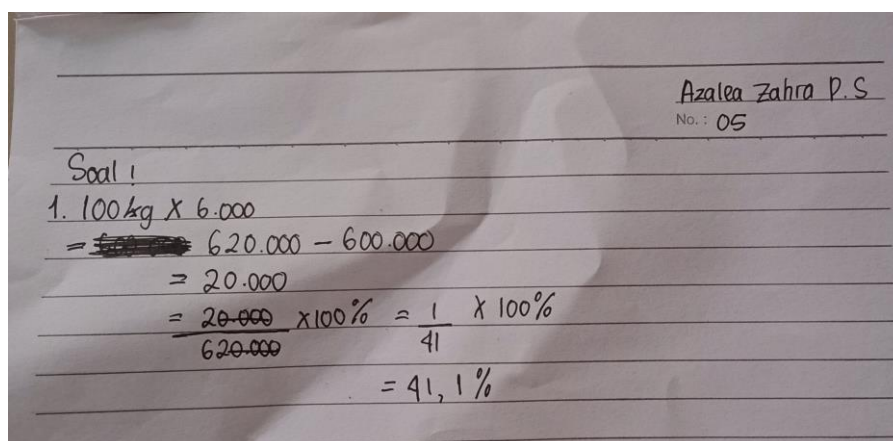 Azalea Zahra P.S
No.: 05
Soal!
1. 100kg X 6.000
= 620.000 - 600.000
= 20.000
= 20.000/620.000 X100% = 1/41 X 100%
= 41,1%